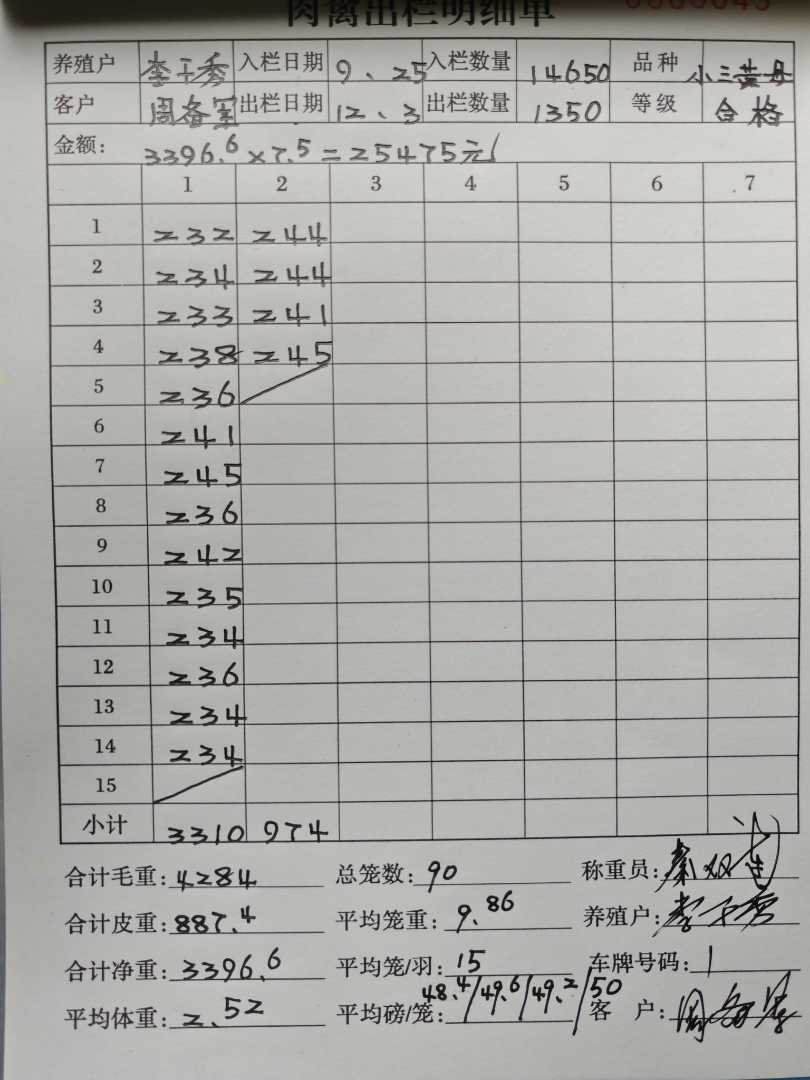 肉禽出栏明细单
养殖户 李干秀 入栏日期 9、25 入栏数量 14650 品种 小三黄母
客户 周备军 出栏日期 12、3 出栏数量 1350 等级 合格
金额: 3396.6×7.5=25475元
1 2 3 4 5 6 7
1 232 244
2 234 244
3 233 241
4 238 245
5 236
6 241
7 245
8 236
9 242
10 235
11 234
12 236
13 234
14 234
15
小计 3310 974
合计毛重: 4284 总笼数: 90 称重员:
合计皮重: 887.4 平均笼重: 9.86 养殖户: 李干秀
合计净重: 3396.6 平均笼/羽: 15 车牌号码: 1
平均体重: 2.52 平均磅/笼: 48.4/49.6/49.2/50 客 户: